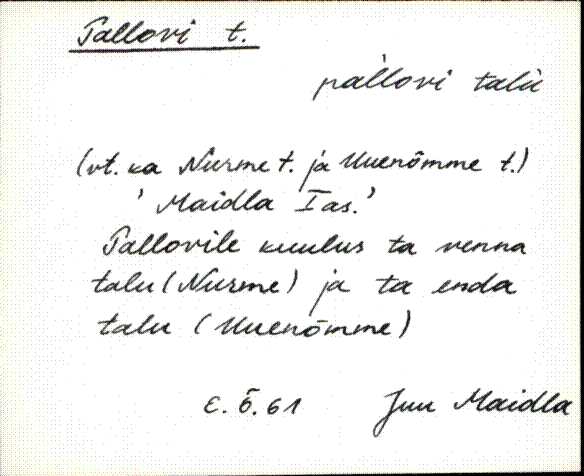 Pallovi t.
pal̀lovi talu
(vt. ka Nurme t. ja Uuenõmme t.)
' Maidla I as.'
Pallovile kuulus ta venna
talu (Nurme) ja ta enda
talu (Uuenõmme)
E. Õ. 61 Juu Maidla